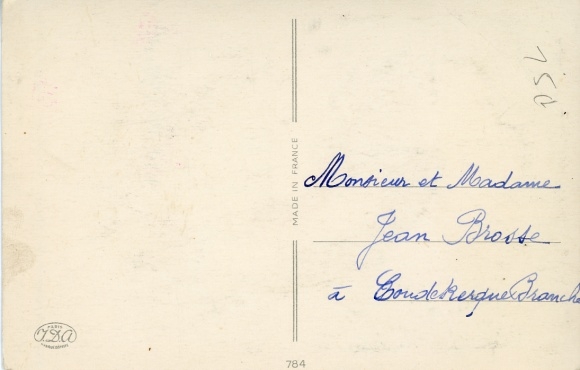 DSL
MADE IN FRANCE
Monsieur et Madame
Jean Brosse
à Coudekerque Branche
PARIS
J.D.A
784